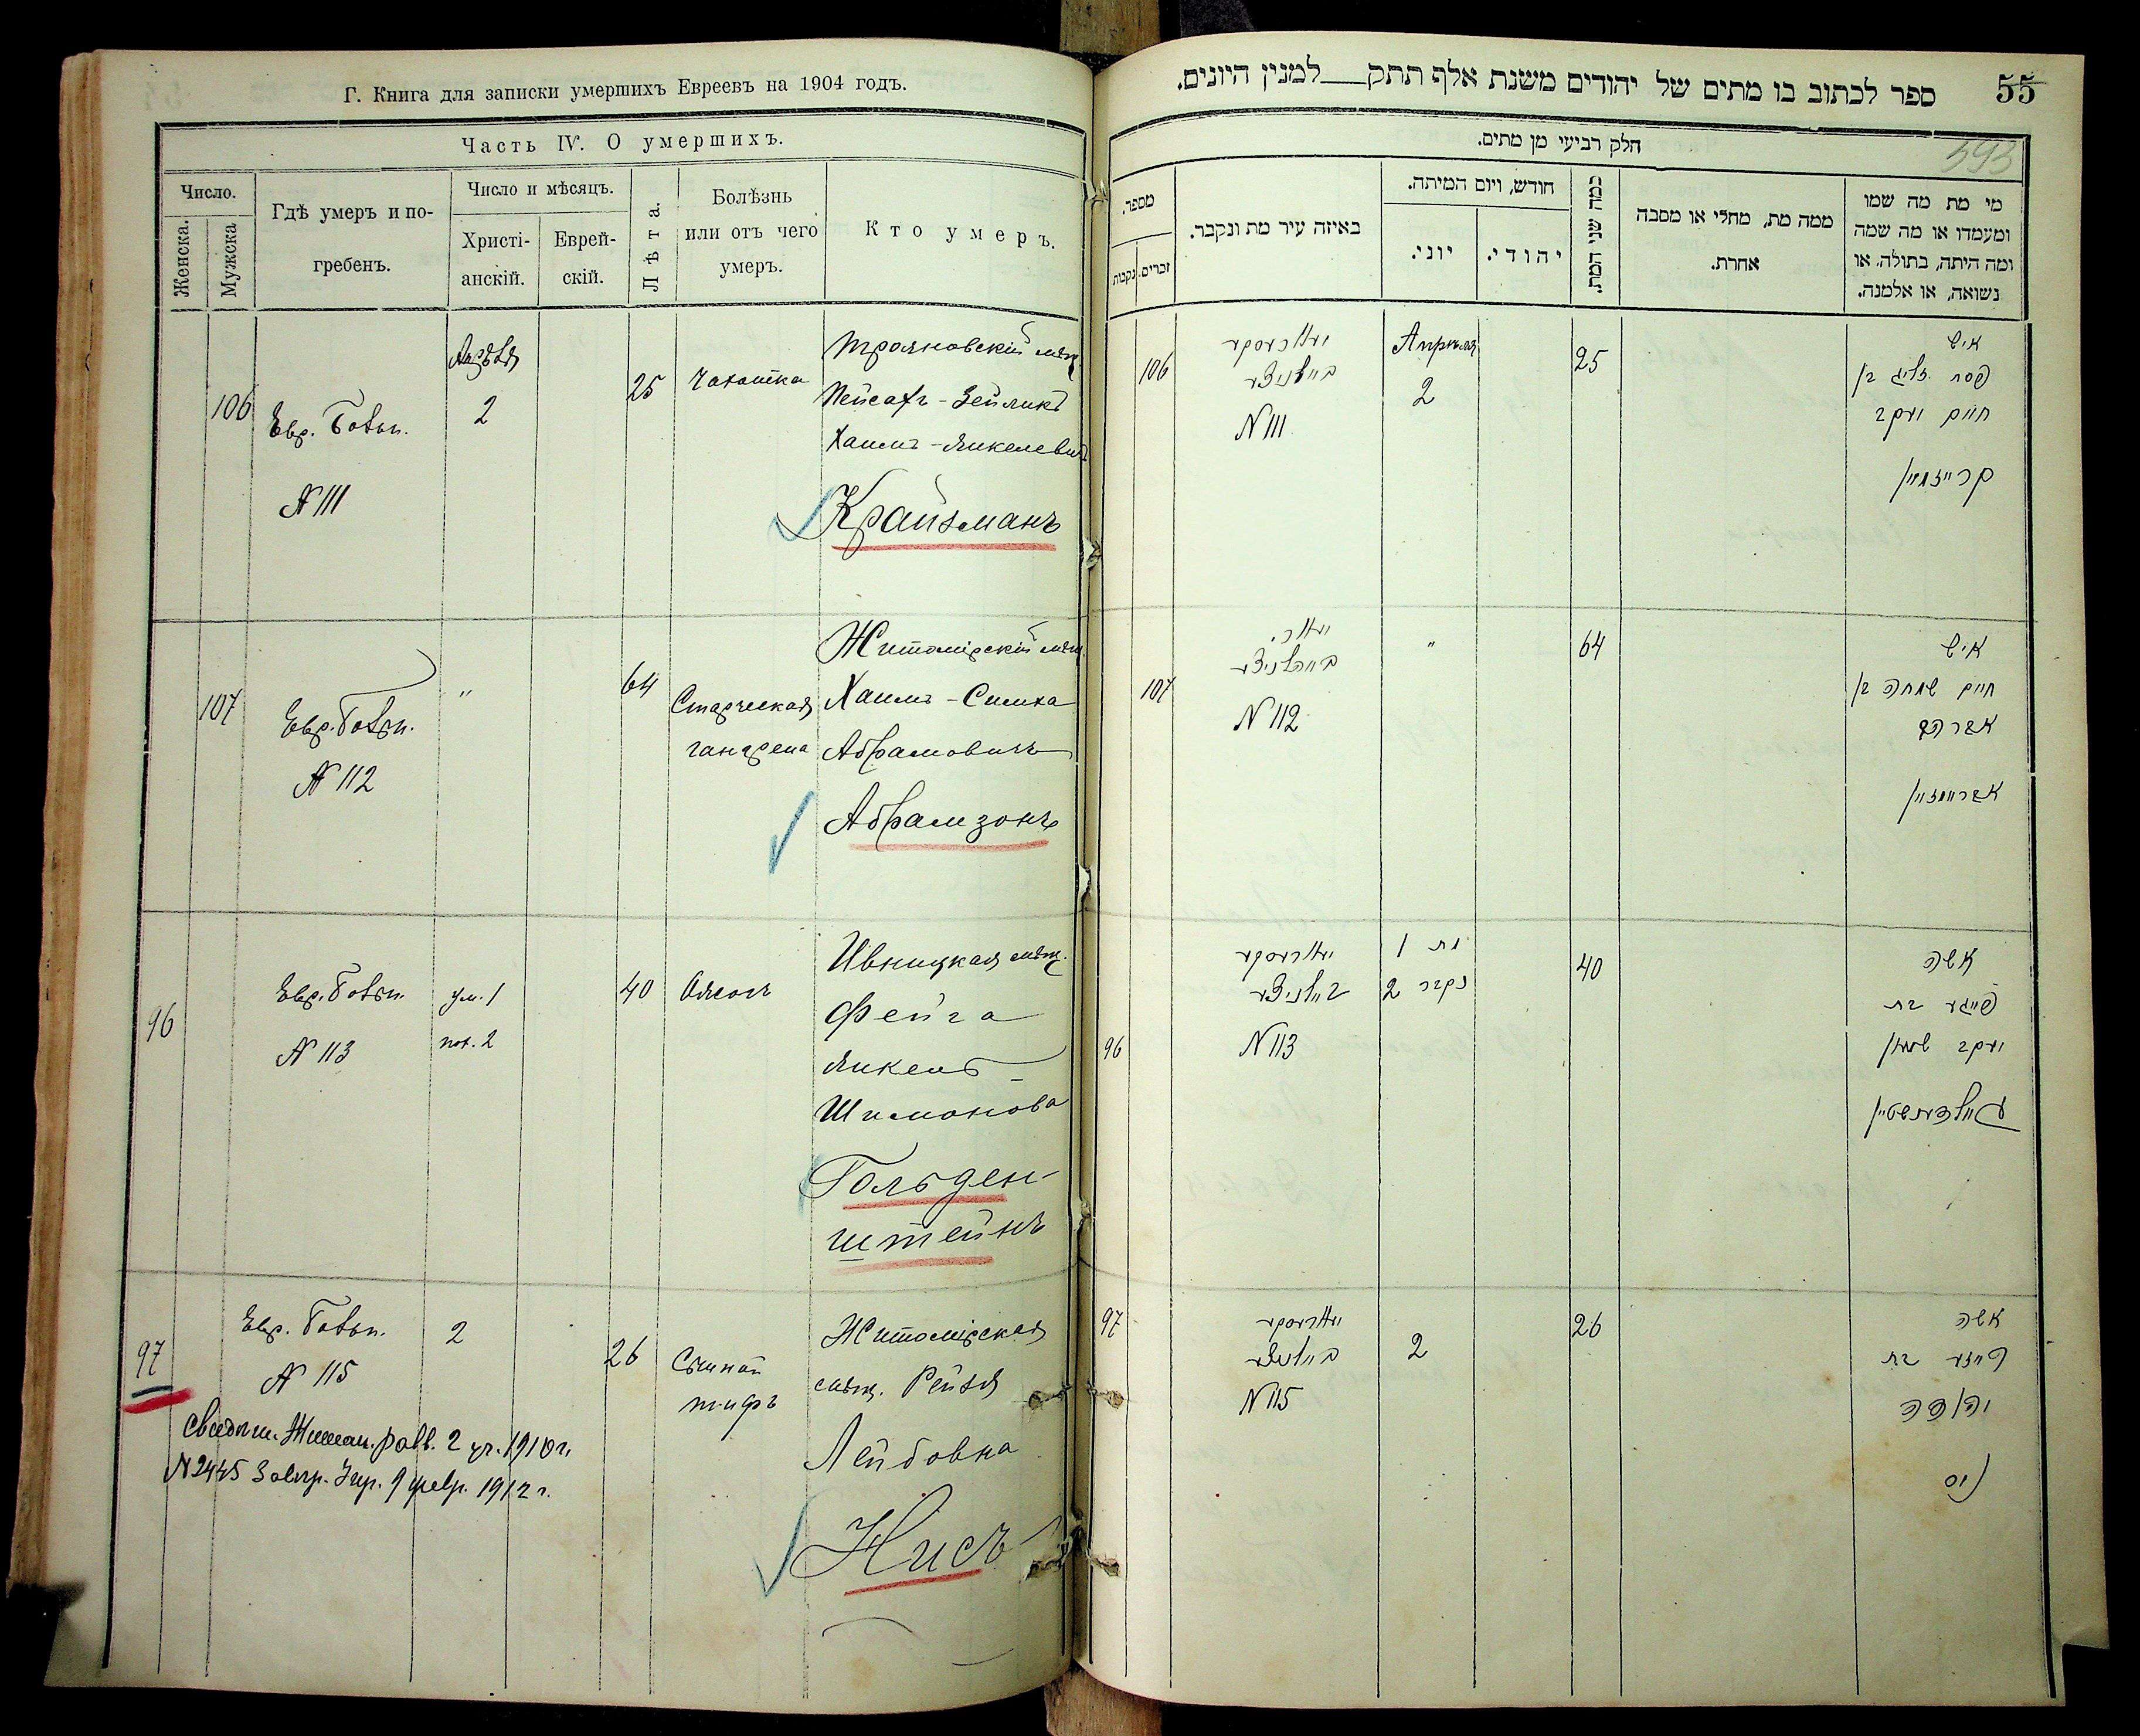 Г. Книга для записки умершихъ Евреевъ на 1904 годъ.
Часть IV. О умершихъ.
Число.
Женска.
Мужска
Гдѣ умеръ и по-
гребенъ.
Число и мѣсяцъ.
Христі-
анскій.
Еврей-
скій.
Лѣта.
Болѣзнь
или отъ чего
умеръ.
Кто умеръ.
106
Евр. Больн.
№ 111
Апрѣля
2
25
Чахотка
Трояновскій мѣщ.
Пейсахъ-Зейликъ
Хаимъ-Янкелевичъ
Крайзманъ
107
Евр. Больн.
№ 112
"
64
Старческая
гангрена
Житомірскій мѣщ.
Хаимъ-Симха
Абрамовичъ
Абрамзонъ
96
Евр. Больн.
№ 113
ум. 1
пох. 2
40
Ивницкая мѣщ.
Фейга
Янкель-
Шимонова
Гольден-
штейнъ
97
Евр. Больн.
№ 115
2
26
Сыпной
тифъ
Житомірская
мѣщ. Рейзя
Лейбовна
Нисъ
2 уч. 1910 г.
№ 2445
9 февр. 1912 г.
ספר לכתוב בו מתים של יהודים משנת אלף תתק___למנין היונים.
55
593
חלק רביעי מן מתים.
מספר.
זכרים.
נקבות
באיזה עיר מת ונקבר.
חודש, ויום המיתה.
יוני.
יהודי.
כמה שני המת.
ממה מת, מחלי או מסבה
אחרת.
מי מת מה שמו
ומעמדו או מה שמה
ומה היתה, בתולה, או
נשואה, או אלמנה.
106
№ 111
Апрѣля
2
25
איש
פסח זליג בן
חיים יעקב
קרייזמאן
107
№ 112
"
64
איש
חיים שמחה בן
אברהם
אבראמזאן
96
№ 113
מת 1
נקבר 2
40
אשה
פייגע בת
יעקב שמעון
גאלדענשטיין
97
№ 115
2
26
אשה
רייזע בת
יהודה
ניס